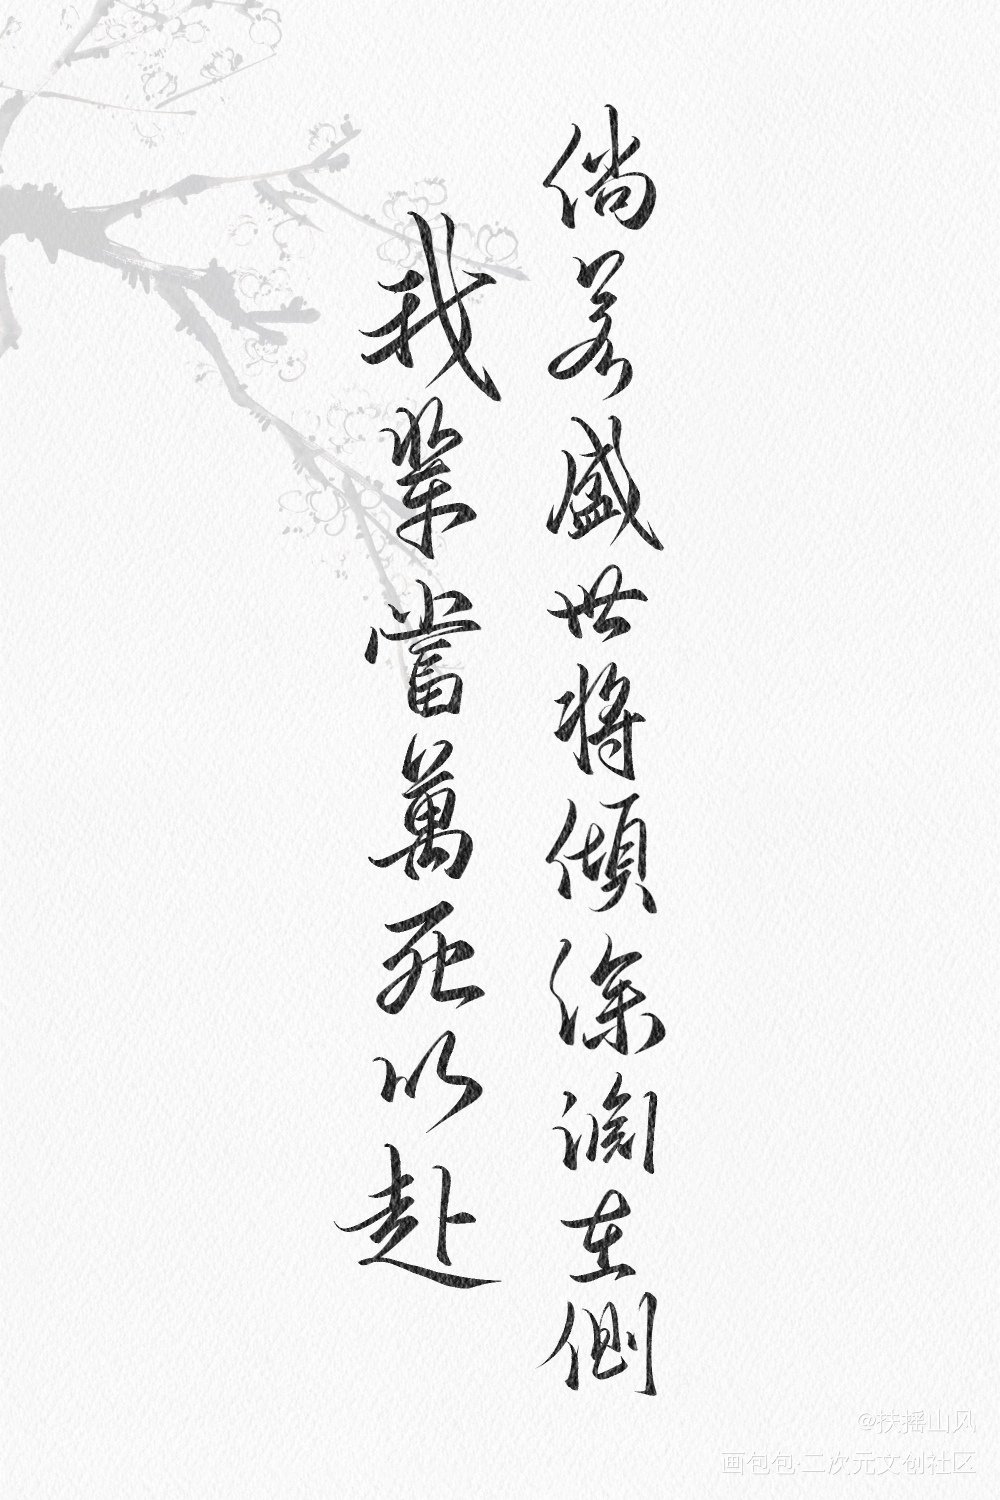 倘若盛世将傾深渊在側
我輩當萬死以赴
@扶摇山风
画包包·二次元文创社区